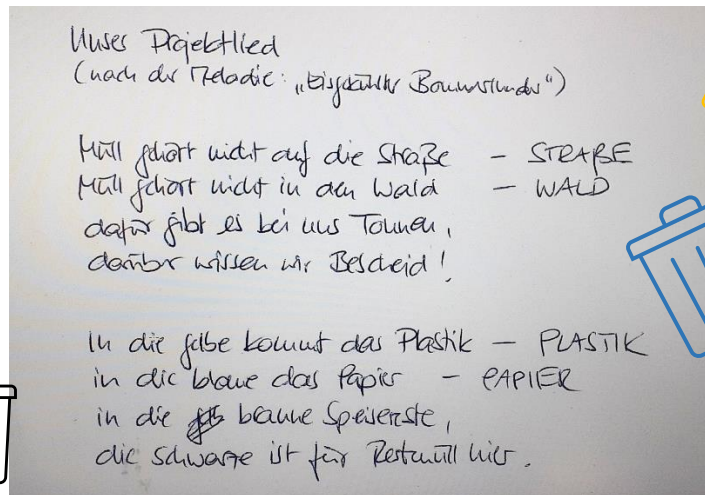 Unser Projektlied
(nach der Melodie: „Eisgekühlter Bommerlunder“)
Müll gehört nicht auf die Straße – STRAßE
Müll gehört nicht in den Wald – WALD
dafür gibt es bei uns Tonnen,
darüber wissen wir Bescheid!
In die gelbe kommt das Plastik – PLASTIK
in die blaue das Papier – PAPIER
in die braune Speisereste,
die schwarze ist für Restmüll hier.